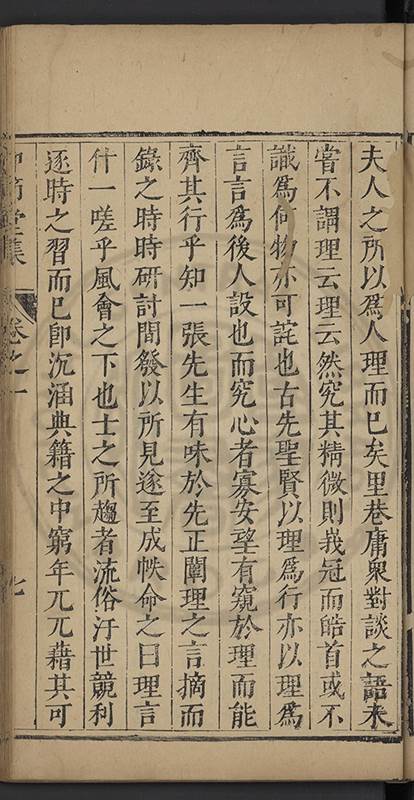 夫人之所以爲人理而巳矣里巷庸衆對談之語未
嘗不謂理云理云然究其精微則峩冠而皓首或不
識爲何物亦可詫也古先聖賢以理爲行亦以理爲
言言爲後人設也而究心者寡安望有窺於理而能
齊其行乎知一張先生有味於先正闡理之言摘而
錄之時時研討間發以所見遂至成帙命之曰理言
什一嗟乎風會之下也士之所趨者流俗汙世競利
逐時之習而巳卽沉涵典籍之中窮年兀兀藉其可
堂集 卷之一 七